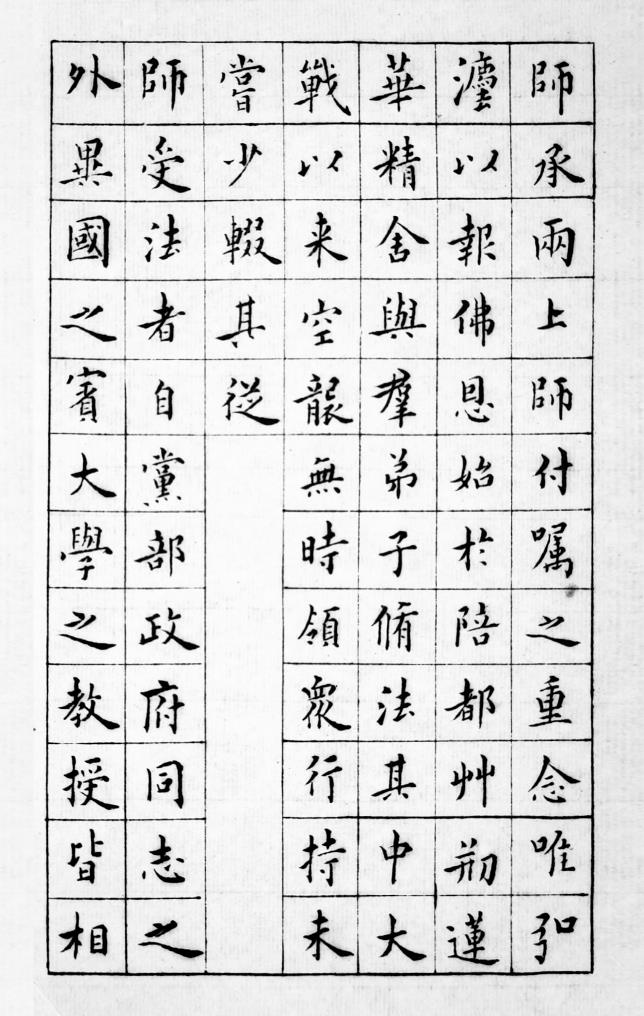 師承兩上師付嘱之重念唯弘
灋以報佛恩始於陪都艸剏蓮
華精舍與羣弟子脩法其中大
戰以来空襲無時領眾行持未
嘗少輟其從
師受法者自黨部政府同志之
外異國之賓大學之教授皆相